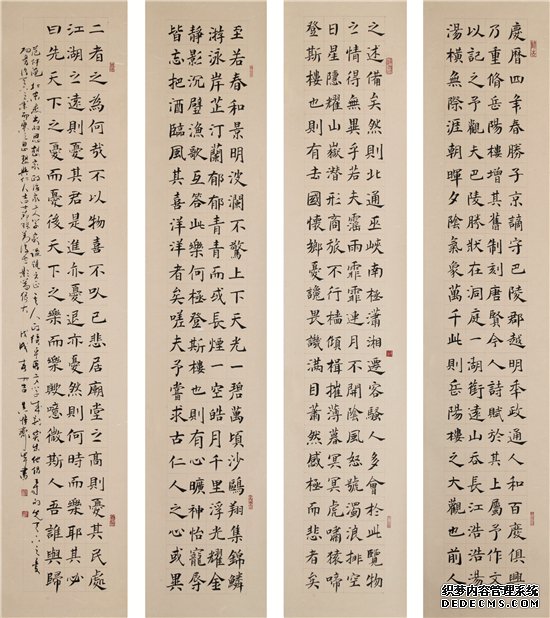 慶曆四年春滕子京謫守巴陵郡越明年政通人和百廢俱興
乃重修岳陽樓增其舊制刻唐賢今人詩賦於其上屬予作文
以記之予觀夫巴陵勝狀在洞庭一湖銜遠山吞長江浩浩湯
湯橫無際涯朝暉夕陰氣象萬千此則岳陽樓之大觀也前人
之述備矣然則北通巫峽南極瀟湘遷客騷人多會於此覽物
之情得無異乎若夫霪雨霏霏連月不開陰風怒號濁浪排空
日星隱耀山嶽潛形商旅不行檣傾楫摧薄暮冥冥虎嘯猿啼
登斯樓也則有去國懷鄉憂讒畏譏滿目蕭然感極而悲者矣
至若春和景明波瀾不驚上下天光一碧萬頃沙鷗翔集錦鱗
游泳岸芷汀蘭郁郁青青而或長煙一空皓月千里浮光耀金
靜影沉璧漁歌互答此樂何極登斯樓也則有心曠神怡寵辱
皆忘把酒臨風其喜洋洋者矣嗟夫予嘗求古仁人之心或異
二者之為何哉不以物喜不以己悲居廟堂之高則憂其民處
江湖之遠則憂其君是進亦憂退亦憂然則何時而樂耶其必
曰先天下之憂而憂後天下之樂而樂歟噫微斯人吾誰與歸
织梦内容管理系统
DEDECMS.COM